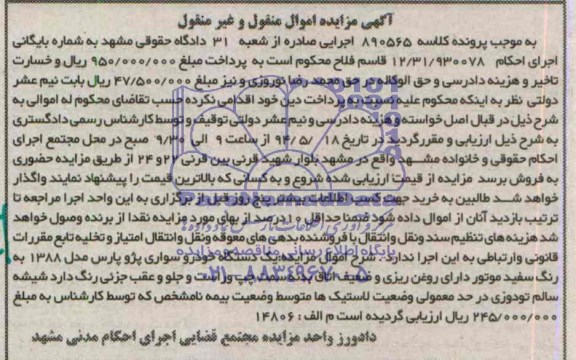 آگهی مزایده اموال منقول و غیر منقول
به موجب پرونده کلاسه ۸۹۰۵۶۵ اجرایی صادره از شعبه ۳۱ دادگاه حقوقی مشهد به شماره بایگانی
اجرای احکام ۱۲/۳۱/۹۳۰۰۷۸ قاسم فلاح محکوم است به پرداخت مبلغ ۹۵۰/۰۰۰/۰۰۰ ریال و خسارت
تاخیر و هزینه دادرسی و حق الوکاله در حق محمد رضا نوروزی و نیز مبلغ ۴۷/۵۰۰/۰۰۰ ریال بابت نیم عشر
دولتی نظر به اینکه محکوم علیه نسبت به پرداخت دین خود اقدامی نکرده حسب تقاضای محکوم له اموالی به
شرح ذیل در قبال اصل خواسته و هزینه دادرسی و نیم عشر دولتی توقیف و توسط کارشناس رسمی دادگستری
به شرح ذیل ارزیابی و مقرر گردید در تاریخ ۱۸ /۹۴/۵ از ساعت ۹ الی ۹/۳۰ صبح در محل مجتمع اجرای
احکام حقوقی و خانواده مشهد واقع در مشهد بلوار شهید قرنی بین قرنی ۲۲ و ۲۴ از طریق مزایده حضوری
به فروش برسد مزایده از قیمت ارزیابی شده شروع و به کسانی که بالاترین قیمت را پیشنهاد نمایند واگذار
خواهد شد طالبین به خرید جهت کسب اطلاعات بیشتر پنج روز قبل از برگزاری به این واحد اجرا مراجعه تا
ترتیب بازدید آنان از اموال داده شود ضمنا حداقل ۱۰ درصد از بهای مورد مزایده نقدا از برنده وصول خواهد
شد هزینه های تنظیم سند ونقل وانتقال با فروشنده بدهی های معوقه ونقل وانتقال امتیاز و تخلیه تابع مقررات
قانونی وارتباطی به این اجرا ندارد . شرح اموال مزایده یک دستگاه خودرو سواری پژو پارس مدل ۱۳۸۸ به
رنگ سفید موتور دارای روغن ریزی و ضعیف اتاق بدنه سمت چپ و راست و جلو و عقب جزئی رنگ دارد شیشه
سالم تودوزی در حد معمولی وضعیت لاستیک ها متوسط وضعیت بیمه نامشخص که توسط کارشناس به مبلغ
۲۴۵/۰۰۰/۰۰۰ ریال ارزیابی گردیده است م الف : ۱۴۸۰۶
دادورز واحد مزایده مجتمع قضایی اجرای احکام مدنی مشهد
پایگاه اطلاع رسانی مناقصه و مزایده
۰۲۱-۸۸۳۴۹۶۷۰-۵